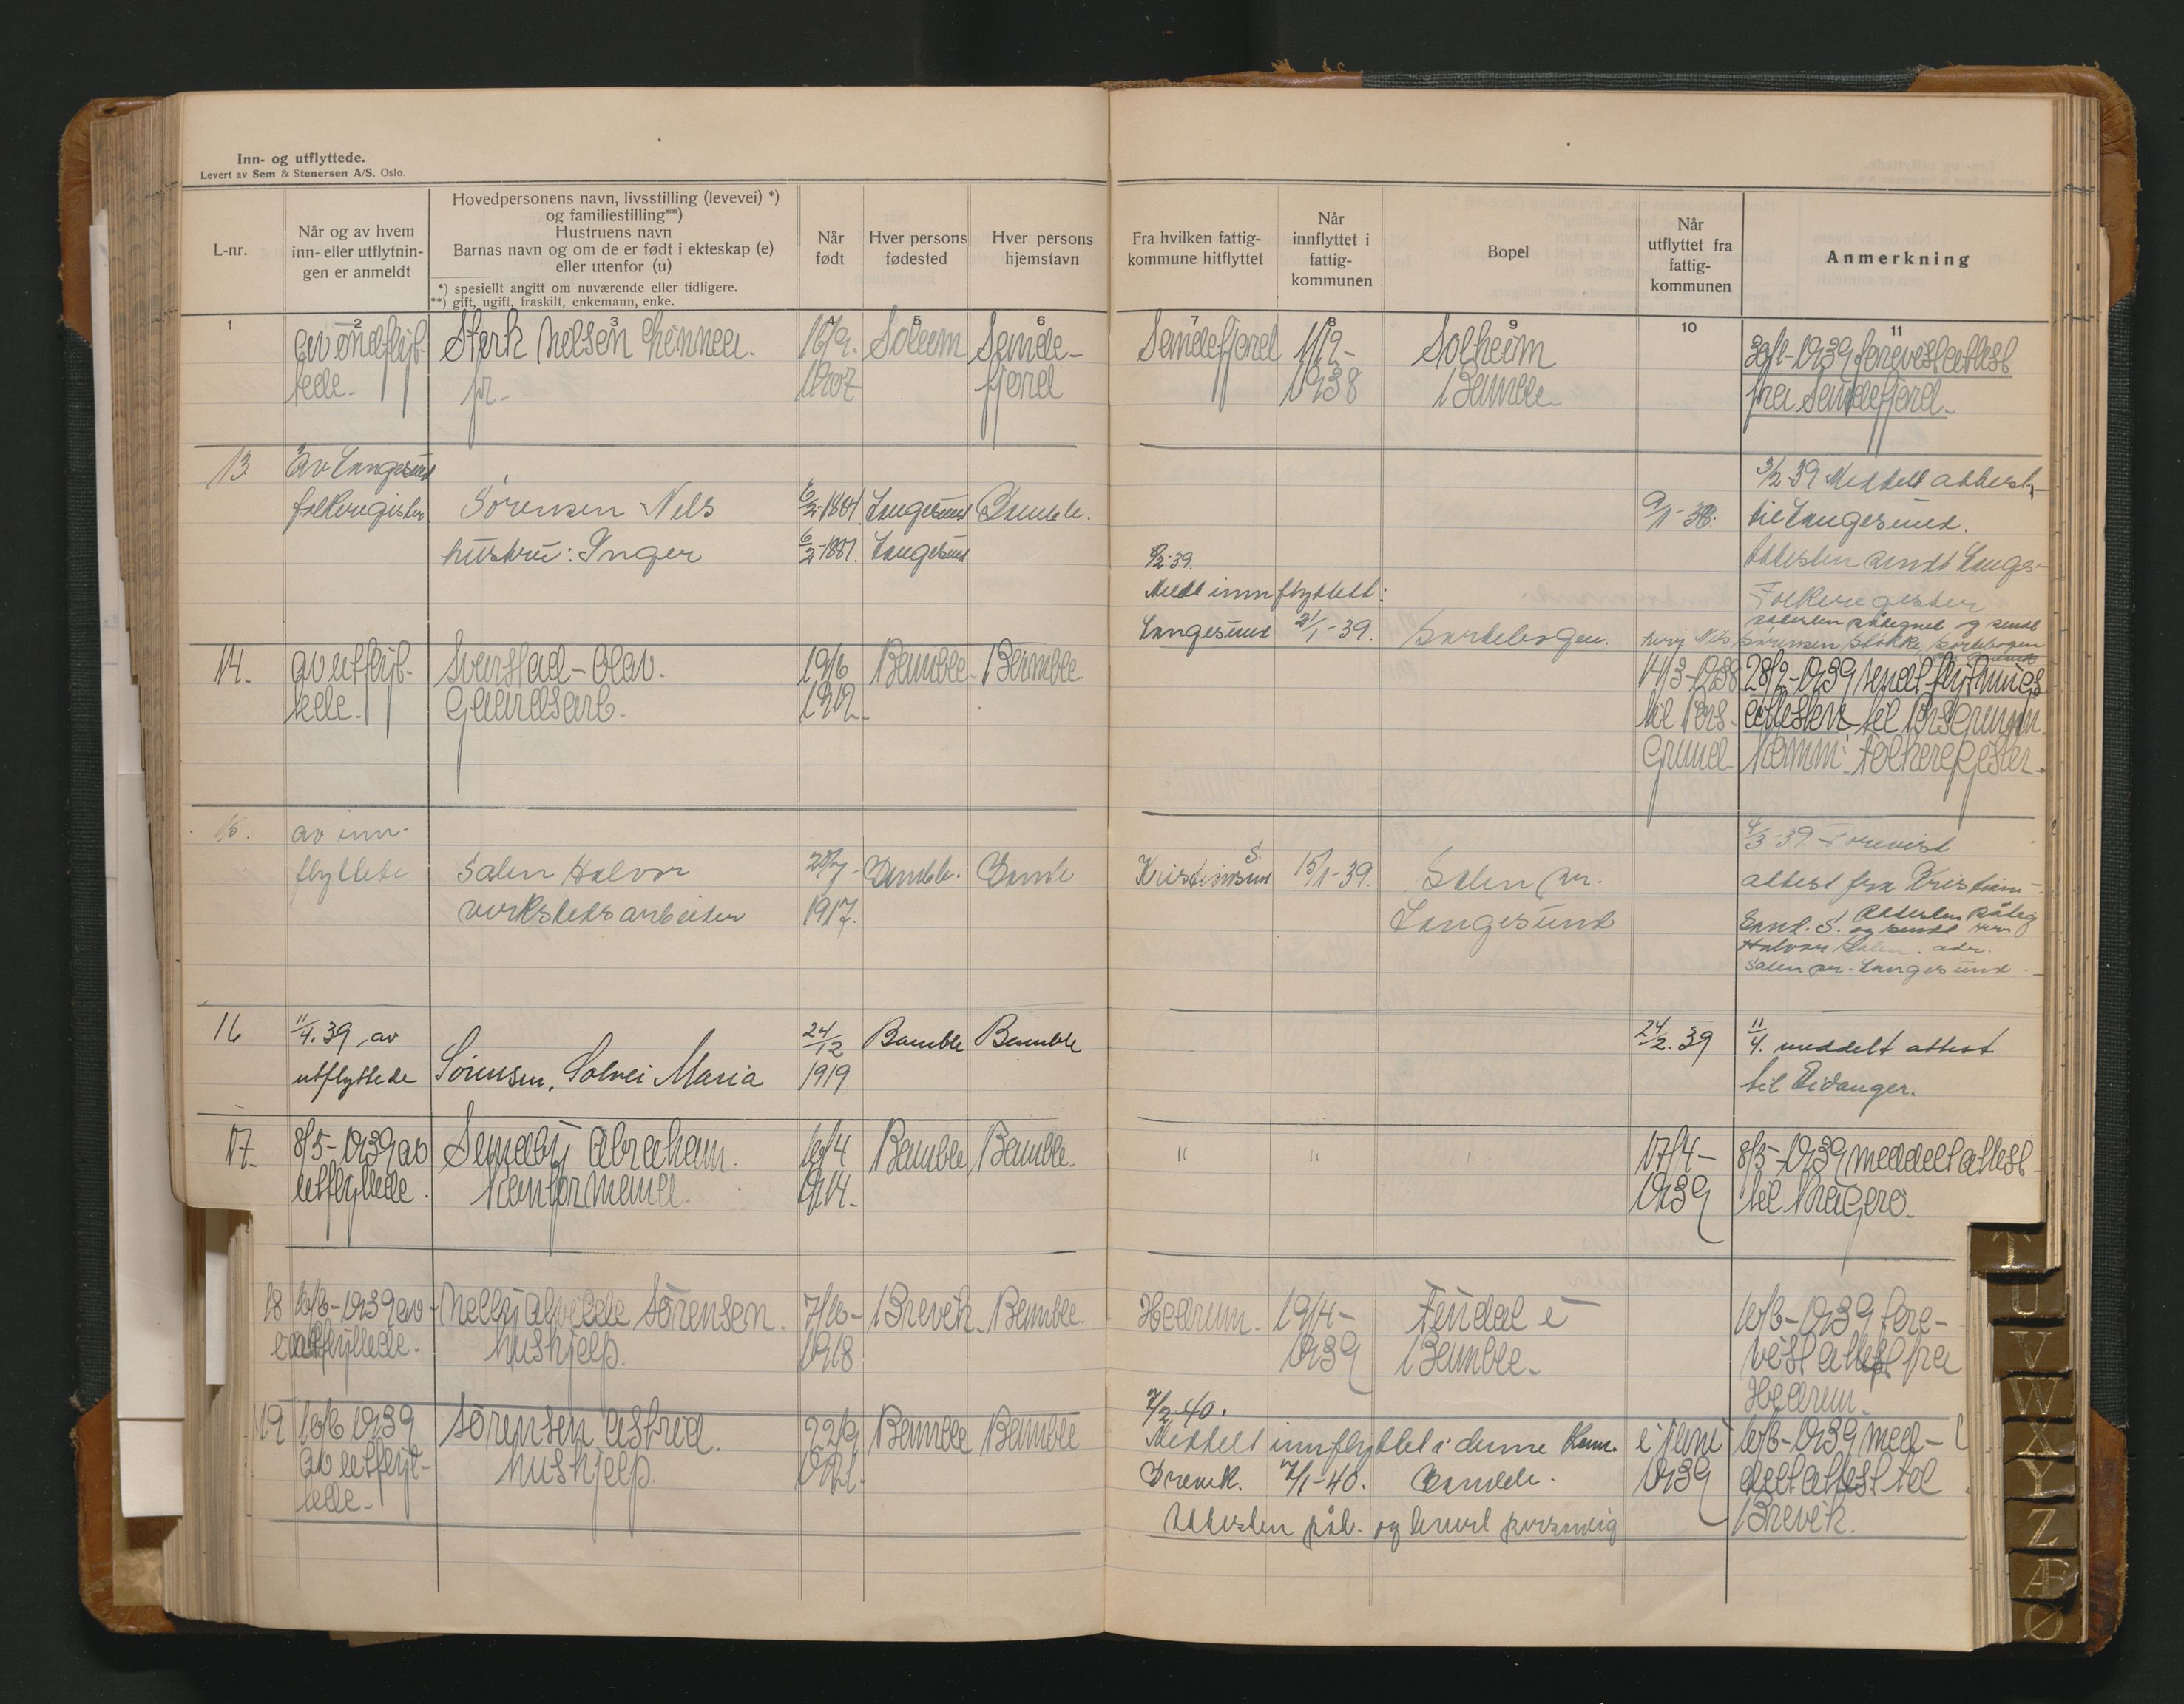 Inn- og utflyttede.
Levert av Sem & Stenersen A/S, Oslo.
L-nr.
Når og av hvem
inn- eller utflytnin-
gen er anmeldt
Hovedpersonens navn, livsstilling (levevei) *)
og familiestilling**)
Hustruens navn
Barnas navn og om de er født i ekteskap (e)
eller utenfor (u)
*) spesiellt angitt om nuværende eller tidligere.
**) gift, ugift, fraskilt, enkemann, enke.
Når
født
Hver persons
fødested
Hver persons
hjemstavn
Fra hvilken fattig-
kommune hitflyttet
Når
innflyttet i
fattig-
kommunen
Bopel
Når
utflyttet fra
fattig-
kommunen
Anmerkning
1 2 3 4 5 6 7 8 9 10 11
av Sterk Nelsen Linnea. 16/9. Solum Sande- Sandefjord 1/12- Solheim 30/1-1939 forevist attest
tede. fr. 1907 fjord 1938 Bamble fra Sandefjord.
13 av Langesund 3/2 39 Meddelt attest
folkeregister Sørensen Nels 6/2-1881. Langesund Bamble. 9/1-38. til Langesund.
hustru: Inger 6/2-1887. Langesund 8/2-39. Attesten sendt Langes-
Meldt innflyttet: Folkeregister
Langesund 21/1-39. attesten påtegnet og sendt
herr Nils Sørensen
14. av utflyt- Sverstad - Olav. 19/6 Bamble Bamble 14/3-1938 28/2-1939 sendt flytnings
tede. Gaardsarb. 1912. til Pors- attesten til Porsgrunn
grund Komm. folkeregister.
15. av inn- 4/3-39. Forevist
flyttete Salen Halvor 20/7- Bamble. Bamble Kristiansund S. 15/1-39. Salen pr. attest fra Kristian-
verkstedsarbeider 1917. Langesund Sand. S. Attesten påteg
og sendt herr
Halvor Salen. adr.
Salen pr. Langesund.
16 11/4. 39, av 24/12 Bamble Bamble 24/2. 39 11/4. meddelt attest
utflyttede Sørensen, Solvei Maria 1919 til Eidanger.
17. 8/5-1939 av Sundby Abraham. 16/4 Bamble Bamble. " " 17/4- 8/5-1939 meddelt attest
utflyttede. Kontormand. 1914. 1939 til Kragerø.
18 16/6-1939 av Nelly Alvilde Sørensen. 7/10- Brevik. Bamble. Hedrum. 19/4- Findal i 16/6-1939 fore-
hushjelp. 1918 1939 Bamble. vist attest fra
Hedrum.
7/2-40.
19 16/6 1939 Sørensen Astrid. 22/9 Bamble Bamble Meddelt innflyttet i denne Kom. i juni 16/6-1939 med-
av utflyt- hushjelp. 1921. Brevik. 7/1-40. Bamble. 1939 delt attest til
tede. Attesten påt. og levert personlig Brevik.
T
U
V
W
X
Y
Z
Æ
Ø